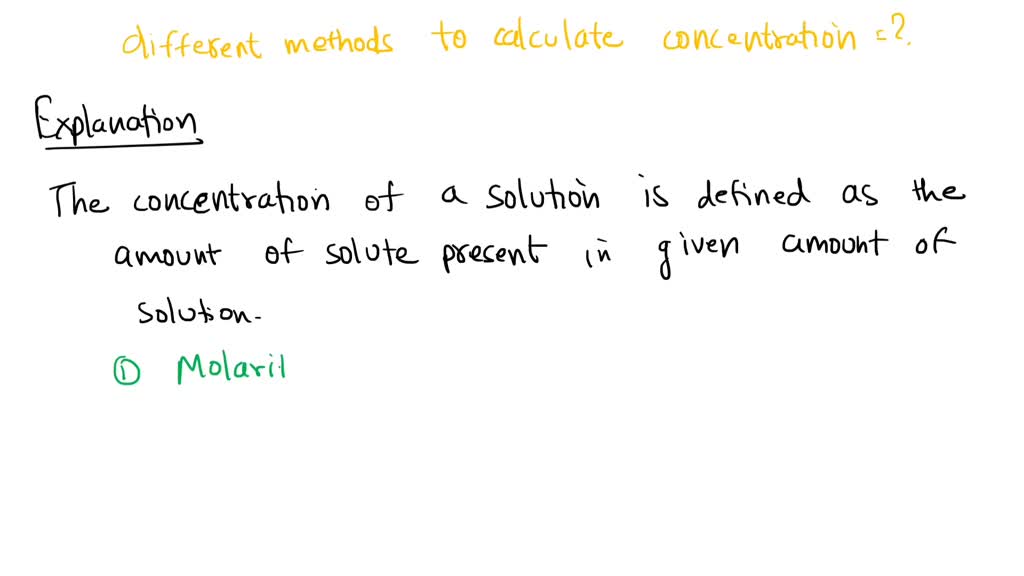 different methods to calculate concentration =?
Explanation
The concentration of a solution is defined as the
amount of solute present in given amount of
solution.
① Molarit